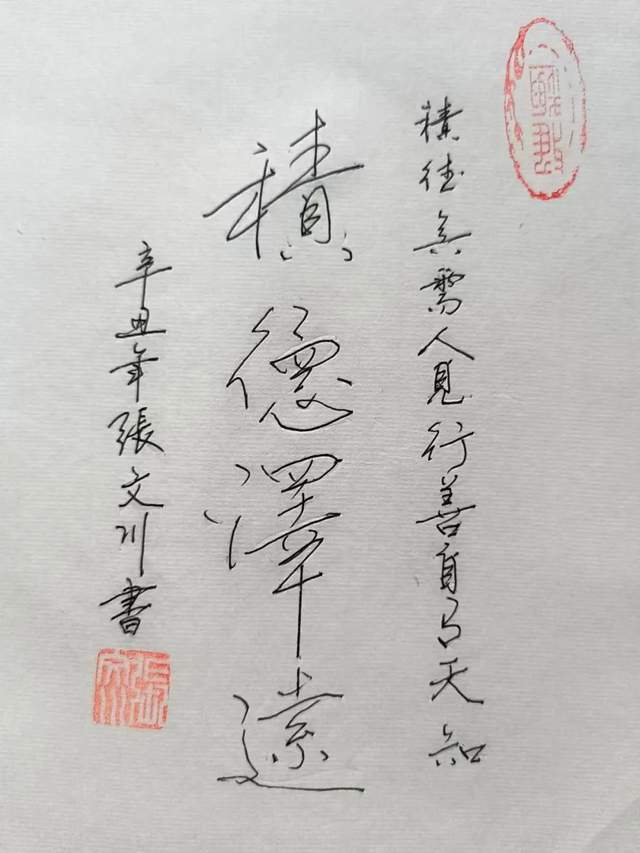 積德無需人見行善自有天知
積德澤遠
辛丑年張文川書